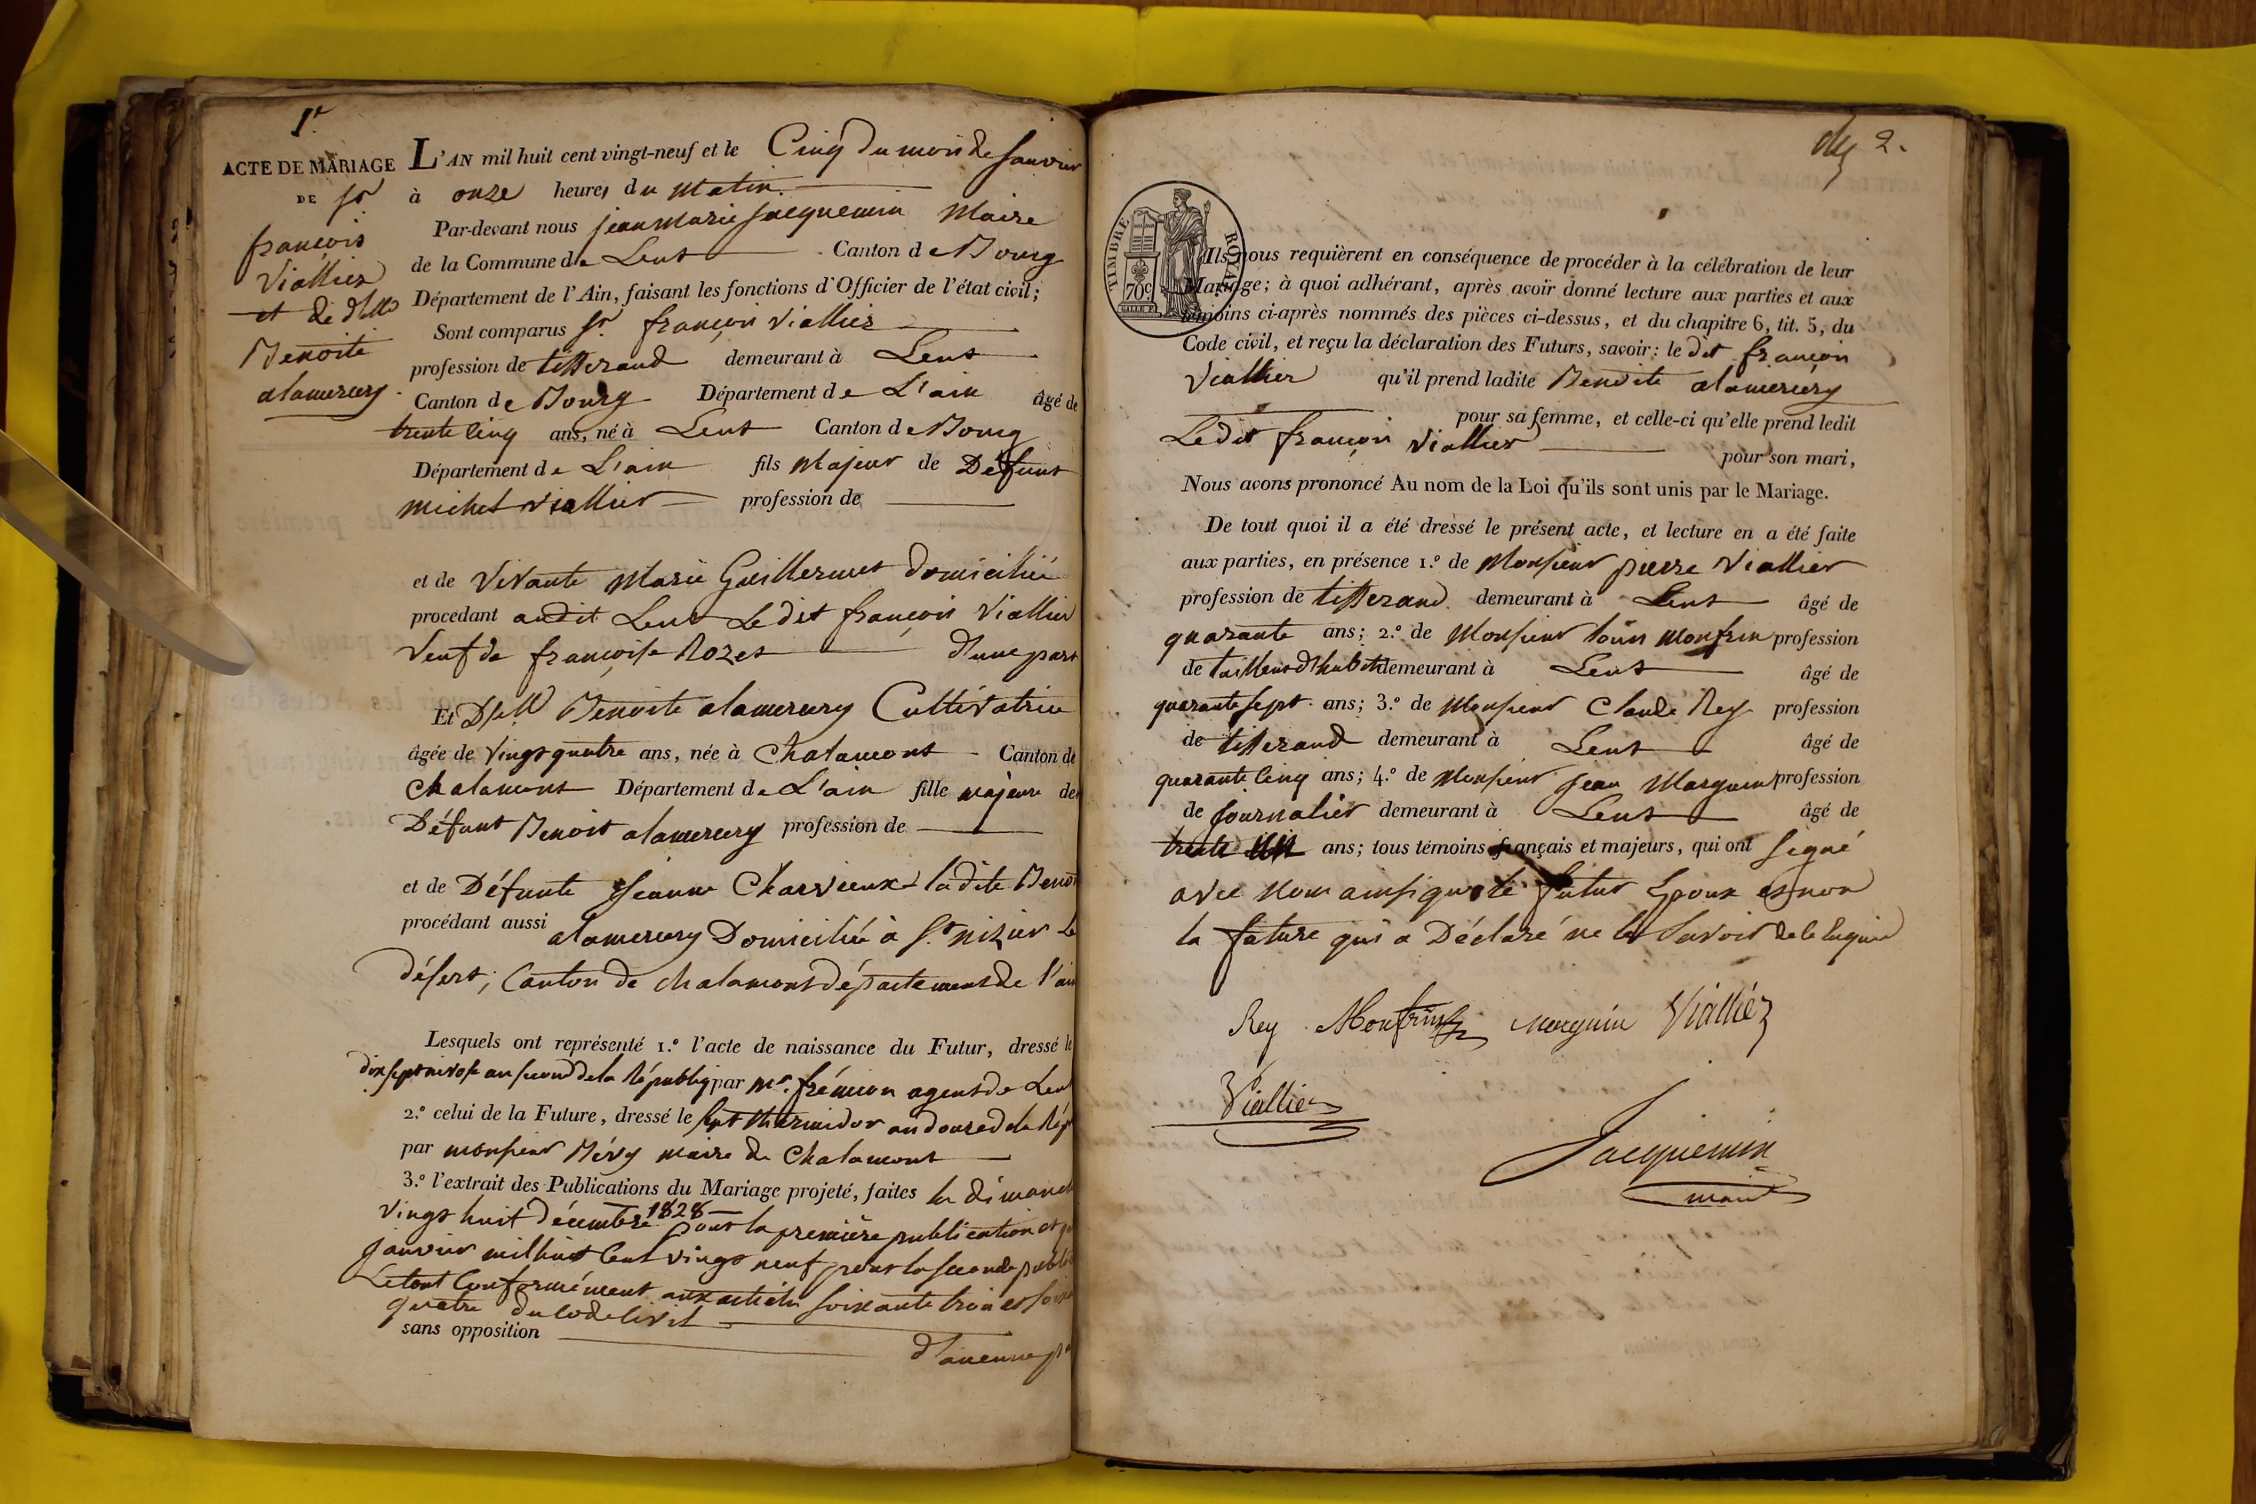 1.r
ACTE DE MARIAGE
DE Sr
françois
Viallier
et de dlle
Benoite
alamercery
L'AN mil huit cent vingt-neuf et le Cinq du mois de Janvier
à onze heures du Matin.
Par-devant nous jean marie Jacquemin Maire
de la Commune de Lent Canton de Bourg
Département de l'Ain, faisant les fonctions d'Officier de l'état civil;
Sont comparus Sr. françois Viallier
profession de tisserand demeurant à Lent
Canton de Bourg Département de L'ain âgé de
trente cinq ans, né à Lent Canton de Bourg
Département de L'ain fils Majeur de Défunt
michel Viallier profession de
et de Vivante Marie Guillermet domiciliée
procédant audit Lent Ledit françois Viallier
Veuf de françoise Rozet d'une part
Et Dlle Benoite alamercery Cultivatrice
âgée de vingt quatre ans, née à Chalamont Canton de
Chalamont Département de L'ain fille majeure de
Défunt Benoit alamercery profession de
et de Défunte Jeanne Charvieux ladite Benoi
procédant aussi alamercery Domiciliée à St. nizier Le
désert; Canton de chalamont département de l'ain
Lesquels ont représenté 1.º l'acte de naissance du Futur, dressé le
dix sept nivose an second de la républiq par Mr. frémion agent de Lent
2.º celui de la Future, dressé le sept thermidor an douze de la Rép
par monsieur Béry maire de Chalamont
3.º l'extrait des Publications du Mariage projeté, faites le dimanch
vingt huit décembre 1828 pour la première publication et
Janvier mil huit Cent vingt neuf pour la seconde public
Le tout Conformément aux articles soixante trois et soixa
quatre du Code Civil
sans opposition
d'aucune p
2.
TIMBRE ROYAL
70 c
Ils nous requièrent en conséquence de procéder à la célébration de leur
Mariage; à quoi adhérant, après avoir donné lecture aux parties et aux
témoins ci-après nommés des pièces ci-dessus, et du chapitre 6, tit. 5, du
Code civil, et reçu la déclaration des Futurs, savoir: le dit françois
Viallier qu'il prend ladite Benoite alamercery
pour sa femme, et celle-ci qu'elle prend ledit
Ledit françois Viallier pour son mari,
Nous avons prononcé Au nom de la Loi qu'ils sont unis par le Mariage.
De tout quoi il a été dressé le présent acte, et lecture en a été faite
aux parties, en présence 1.º de Monsieur pierre Viallier
profession de tisserand demeurant à Lent âgé de
quarante ans; 2.º de Monsieur louis Monfrin profession
de tailleur d'habits demeurant à Lent âgé de
quarante sept ans; 3.º de Monsieur Claude Rey profession
de tisserand demeurant à Lent âgé de
quarante cinq ans; 4.º de Monsieur Jean Marguin profession
de journalier demeurant à Lent âgé de
trente ans; tous témoins français et majeurs, qui ont signé
avec nous ainsi que le futur Epoux et non
la future qui a Déclaré ne le Savoir de ce Enquise
Rey Monfrin Marguin Viallier
Viallier
Jacquemin
maire